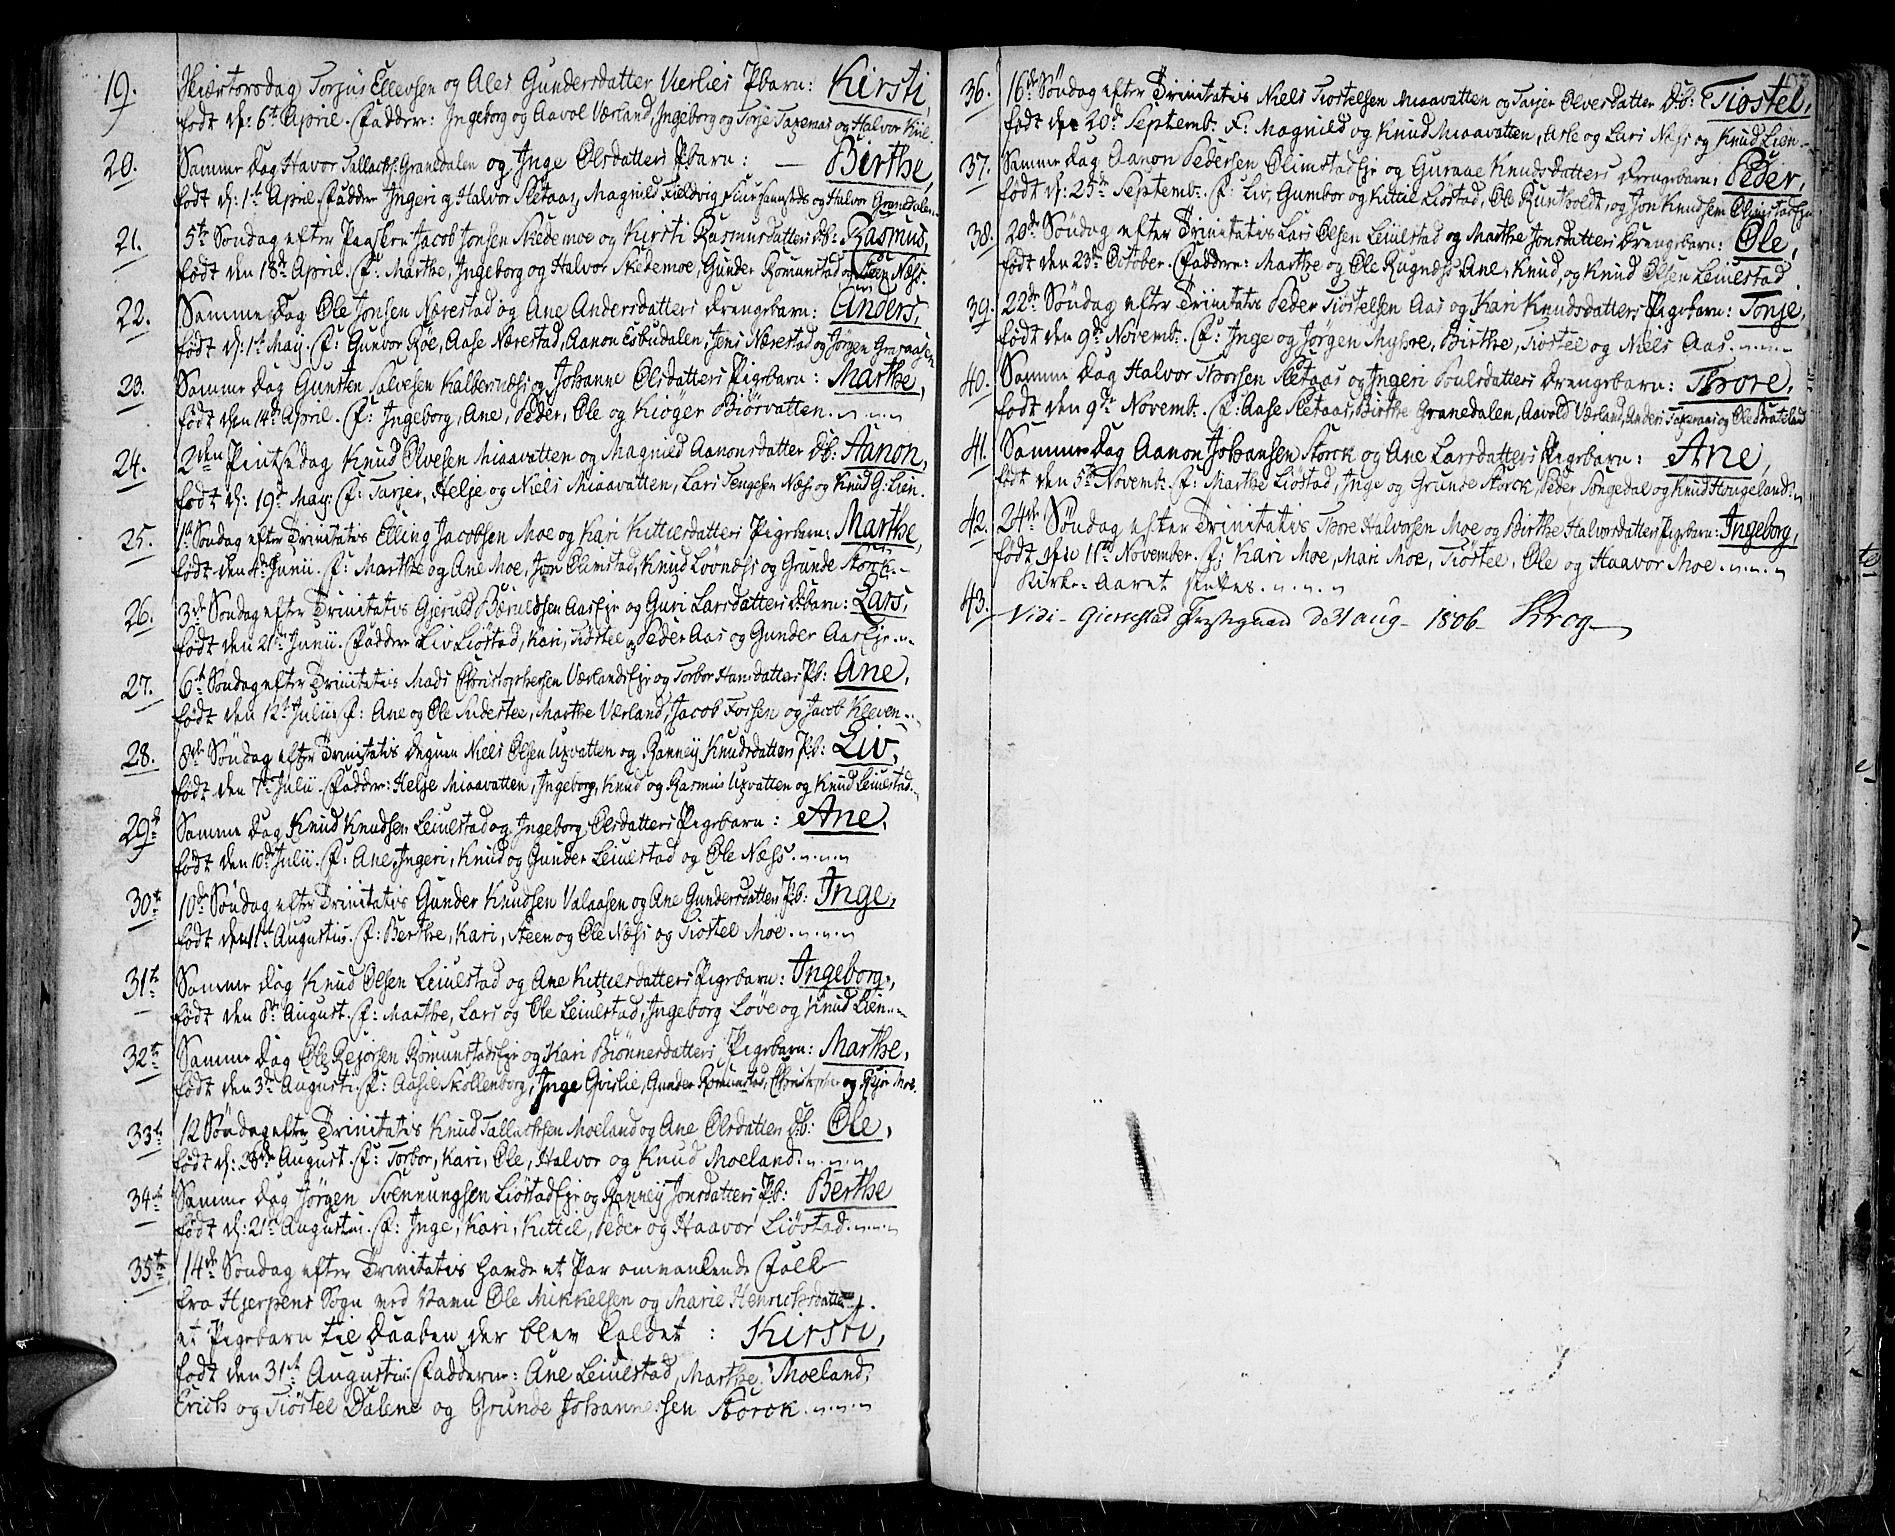 19. Skiærtorsdag Torjus Ellevsen og Ales Gundersdatter Vierlies Pbarn: Kirsti,
født d: 6te April. Faddere: Ingeborg og Aavol Værland, Ingeborg og Torje og Halvor
20. Samme Dag Havor Tallachs: Granedalen og Inge Olsdatters Pbarn: — Birthe,
født d: 1te April. Fadder Ingeri og Halvor Sletaas, Magnild og Halvor Granedalen
21. 5te Søndag efter Paasken Jacob Jonsen Skedemoe og Kirsti Rasmusdatters Db: Rasmus,
født den 18de April. F: Marthe, Ingeborg og Halvor Skedemoe, Gunder Romunstad, og Steen Næss.
22. Samme Dag Ole Jonsen Nærestad og Ane Andersdatters Drengebarn: Anders,
født d: 1te May. F: Gunvor Roe, Aase Nærestad, Aanon Esbudalen, Jens Nærestad og Jørgen Grasaasen
23. Samme Dag Gunsten Salvesen Kalbernæss og Johanne Olsdatters Pigebarn: Marthe,
født den 14de April. F: Ingeborg, Ane, Peder, Ole og Kiøger Biørvatten.
24. 2den Pintsedag Knud Olvesen Miaavatten og Magnild Aanonsdatter Db: Aanon,
født d: 19de May: F: Tarjer, Helje og Niels Miaavatten, Lars Tengesen Næss og Knud G: Lien.
25. 1te Søndag efter Trinitatis Elling Jacobsen Moe og Kari Kittilsdatters Pigebarn: Marthe,
født den 4de Junii. F: Marthe og Ane Moe, Jon Olimstad, Knud Løvnæss og Grunde Storck.
26. 3de Søndag efter Trinitatis Gjeruld Bæruldsen AasEje og Guri Larsdatters Dbarn: Lars,
født den 21de Junii. Fadder Liv Liøstad, Kari, Tiøstel og Peder Aas og Gunder AasEje.
27. 6te Søndag efter Trinitatis Mads Christophersen VærlandsEje og Torbor Hansdatters Pb: Ane,
født den 12te Julii F: Ane og Ole Sudestee, Marthe Værland, Jacob Forsen og Jacob Kleven.
28. 8de Søndag efter Trinitatis Degnen Niels Olsen Uxvatten og Ranney Knudsdatters Pb: Liv,
født den 7de Julii. Fadder: Helje Miaavatten, Ingeborg, Knud og Rasmus Uxvatten og Knud Leiulstad.
29de Samme Dag Knud Knudsen Leiulstad og Ingeborg Olsdatters Pigebarn: Ane,
født den 10de Julii. F: Ane, Ingeri, Knud og Gunder Leiulstad og Ole Næss.
30te 10de Søndag efter Trinitatis Gunder Knudsen Valaasen og Ane Gundersdatters Pb: Inge,
født den 11te Augustus. F: Berthe, Kari, Steen og Ole Næss og Tiøstel Moe.
31te Samme Dag Knud Olsen Leiulstad og Ane Kittilsdatters Pigebarn: Ingeborg,
født den 8de August. F: Marthe, Lars og Ole Leiulstad, Ingeborg Løve og Knud Lien.
32te Samme Dag Ole Rejorsen RomunstadsEje og Kari Biønnersdatters Pigebarn: Marthe,
født den 3de Augusti. F: Aasil Skollenborg, Inge Gvislie, Gunder Romunstad, Christopher og Rejor Moe.
33te 12 Søndag efter Trinitatis Knud Tallachsen Moeland og Ane Olsdatters Db: Ole,
født d: August. F: Torbor, Kari, Ole, Halvor og Knud Moeland.
34te Samme Dag Jørgen Svennungsen LiøstadEje og Ranney Jonsdatters Pb: Berthe
født d: 21te Augustus. F: Inge, Kari, Kittil, Peder og Haavor Liøstad.
35te 14de Søndag efter Trinitatis havde et Par omvankende Folk
fra Hjerpens Sogn ved Navn Ole Mikkelsen og Marie Henrichsdatter
et Pigebarn til Daaben der blev kaldet: Kirsti,
født den 31te Augustus. Faddere: Ane Leiulstad, Marthe Moeland,
Erich og Tiøstel Dalene og Grunde Johannessen Storck.
36. 16de Søndag efter Trinitatis Niels Tiøstelsen Miaavatten og Tarjer Olvesdatter Db: Tiøstel,
født d: 20de Septemb. F: Magnild og Knud Miaavatten, Asle og Lars Næss og Knud Lien.
37. Samme Dag Aanon Pedersen OlimstadEje og Guraae Knudsdatters Drengebarn: Peder,
født d: 25de Septemb. F: Liv, Gumbor og Kittil Liøstad, Ole Runtholdt, og Jon Knudsen OlimstadEje
38. 20de Søndag efter Trinitatis Lars Olsen Leiulstad og Marthe Jonsdatters Drengebarn: Ole,
født den 23de October. Faddere: Marthe og Ole Rugnæss Ane, Knud, og Knud Olsen Leiulstad
39. 22de Søndag efter Trinitatis Peder Tiøstelsen Aas og Kari Knudsdatters Pigebarn: Tonje,
født den 9de Novemb. F: Inge og Jørgen Myhre, Birthe, Tiøstel og Niels Aas.
40. Samme Dag Halvor Thorsen Sletaas og Ingeri Poulsdatters Drengebarn: Thore,
født den 9de Novemb. F: Aase Sletaas, Birthe Granedalen, Aavold Værland, Anders og Ole Brateland
41. Samme Dag Aanon Johansen Storck og Ane Larsdatters Pigebarn: Ane,
født den 5te Novemb. F: Marthe Liøstad, Inge og Grunde Storck, Peder Songedal og Knud Hougeland.
42. 24de Søndag efter Trinitatis Thore Halvorsen Moe og Birthe Halvorsdatters Pigebarn: Ingeborg,
født den 11te November. F: Kari Moe, Mari Moe, Tiøstel, Ole og Haavor Moe.
Kirke-Aaret sluttes.
43. Vidi - Gierrestad Præstegaard d 31 aug - 1806 - Krog